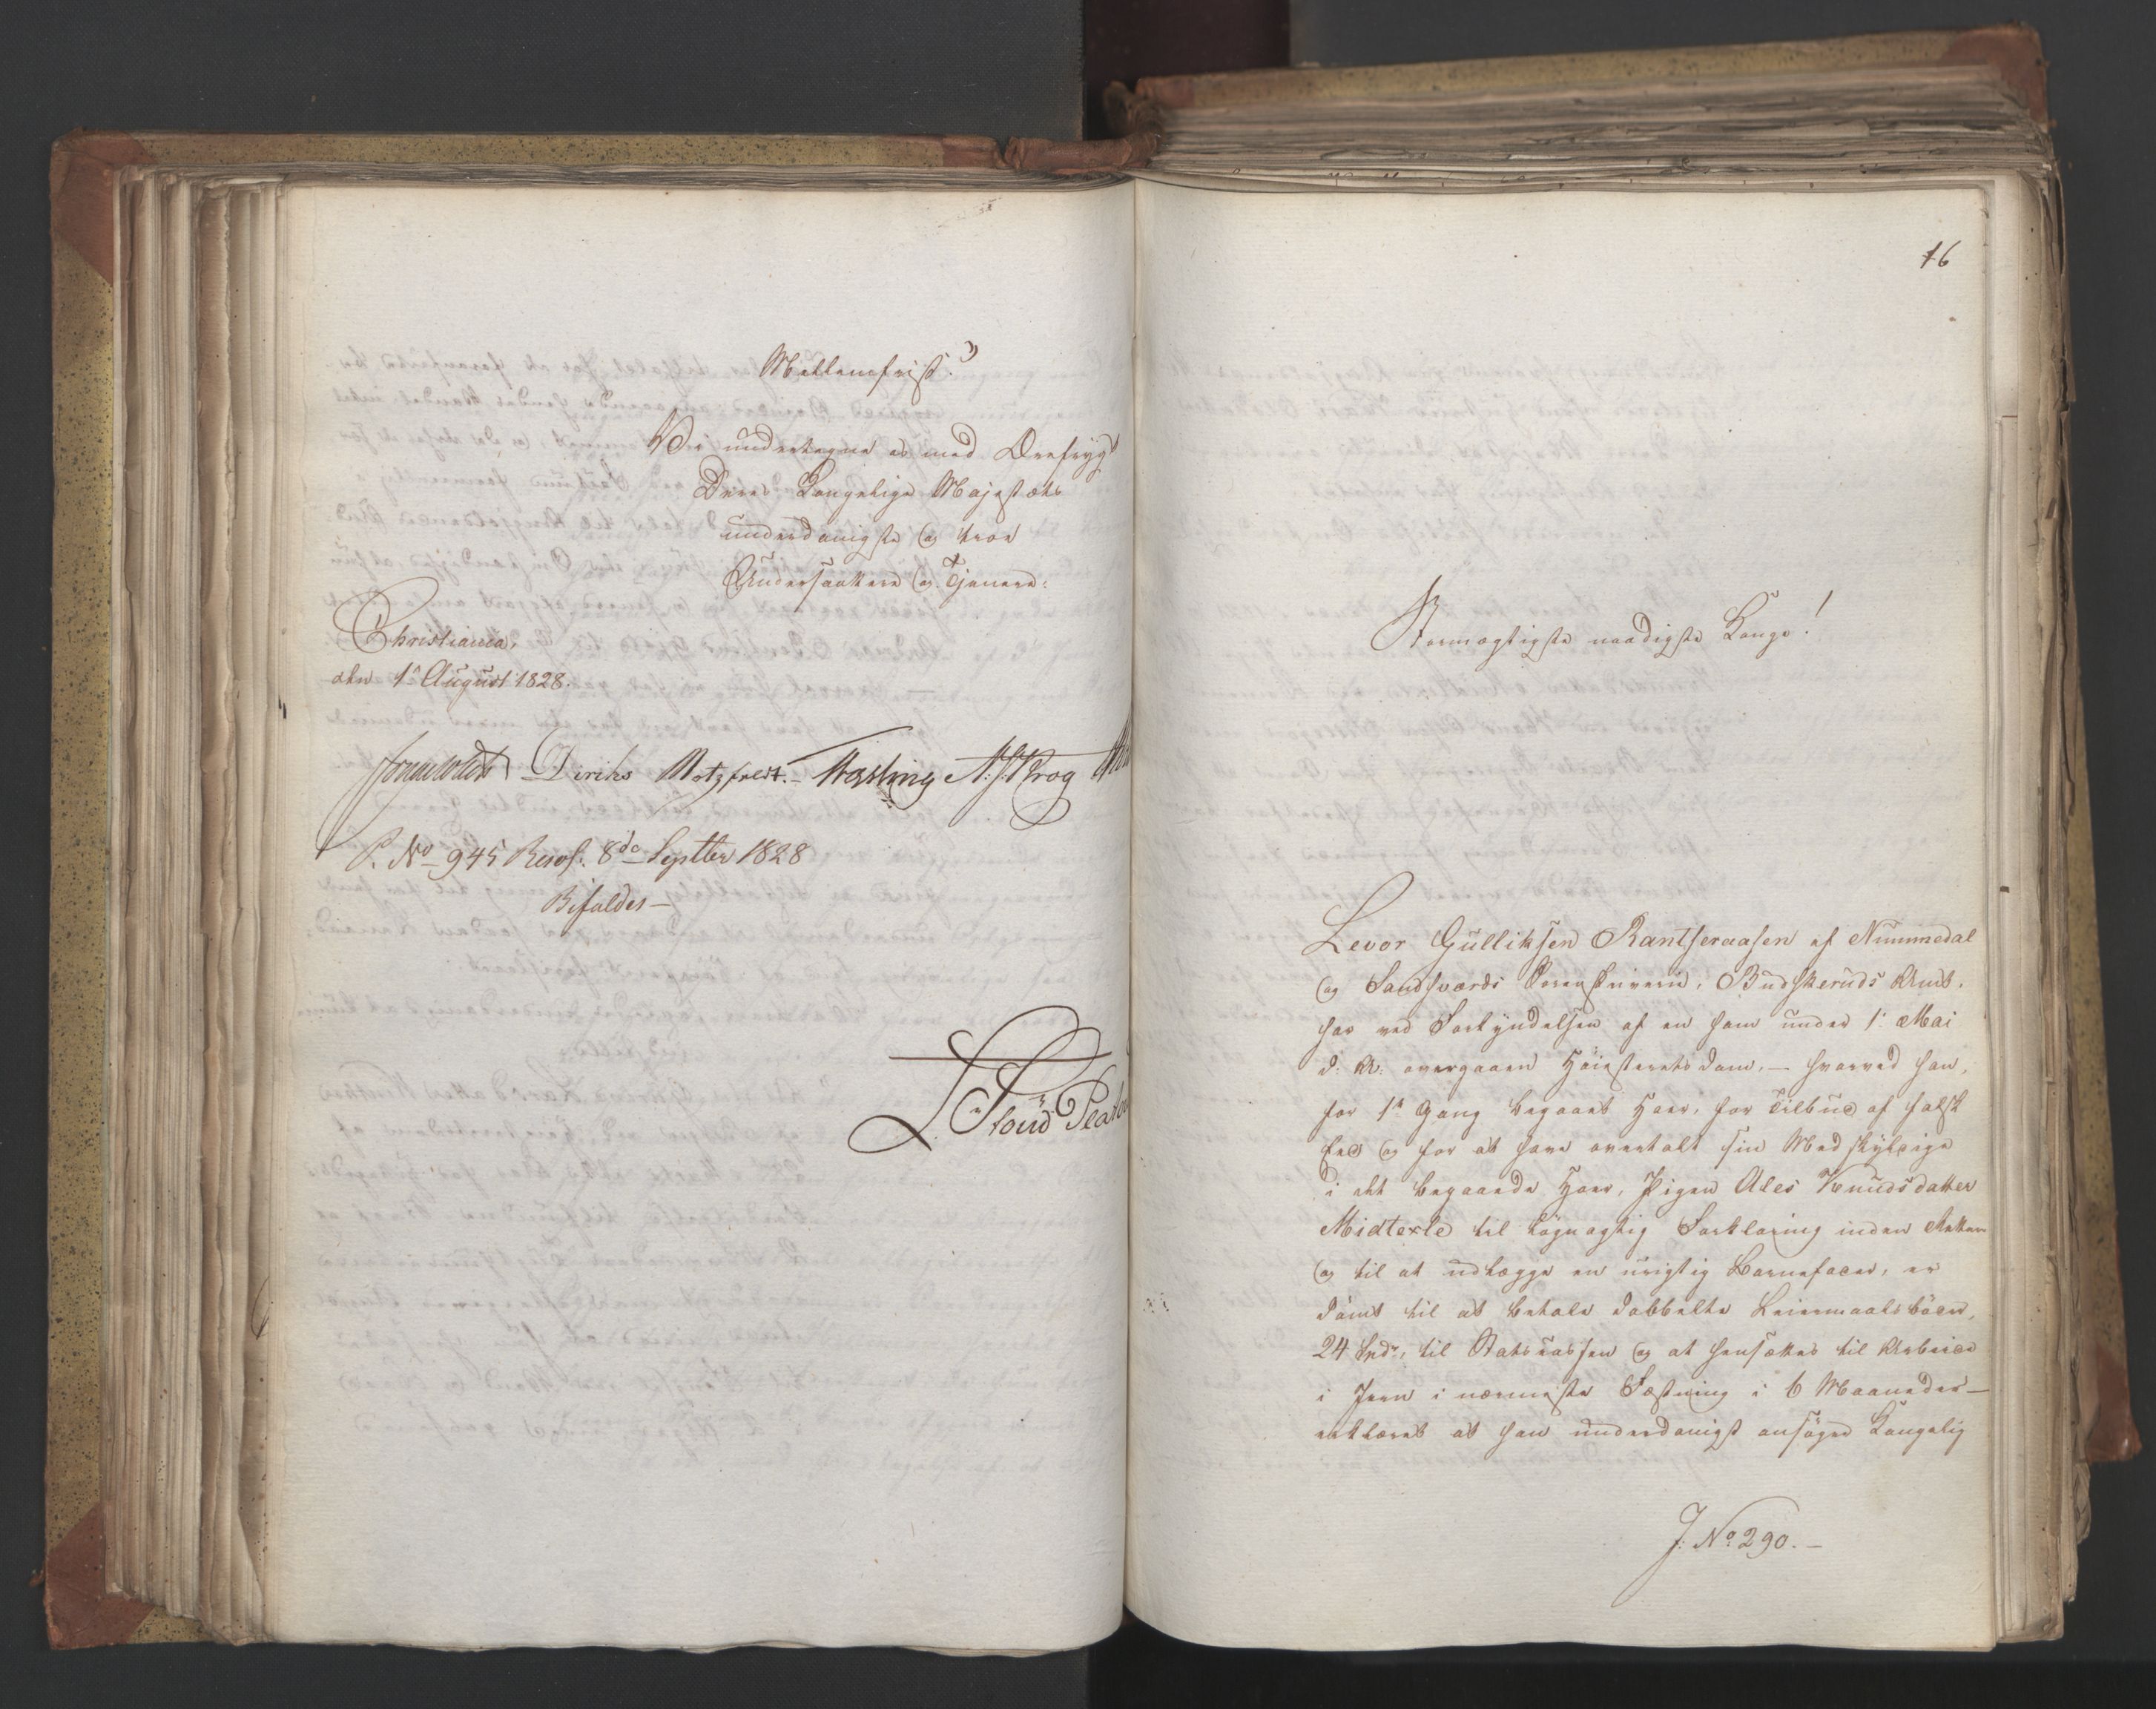 Mellemfrist."
Vi undertegne os med Ærefrygt
Deres Kongelige Majestæts
underdanigste og troe
Undersaattere og Tjenere.
Christiania,
den 1ste August 1828.
Diriks Motzfeldt. Fasting N. J. Krog
P. No 945 Resol. 8de Septber 1828
Bifaldes—
16
Stormægtigste naadigste Konge!
Levor Gulliksen Rantseraasen af Nummedal
og Sandsværds Sorenskriverie, Budskeruds Amt,
har ved Forkyndelsen af en ham under 1. Mai
d: A: overgaaen Høiesterets Dom, — hvorved han,
for 1ste Gang begaaet Hoer, for Tilbud af falsk
Eed og for at have overtalt sin Medskyldige
i det begaaede Hoer, Pigen Ales Knudsdatter
Midtexle til løgnagtig Forklaring inden Retten
og til at udlægge en urigtig Barnefader, er
dømt til at betale dobbelte Leiermaalsbøder,
24 Spd., til Statskassen og at hensættes til Arbeide
i Jern i nærmeste Fæstning i 6 Maaneder —
erklæret at han underdanigst ansøger Kongelig
J. No 290. —